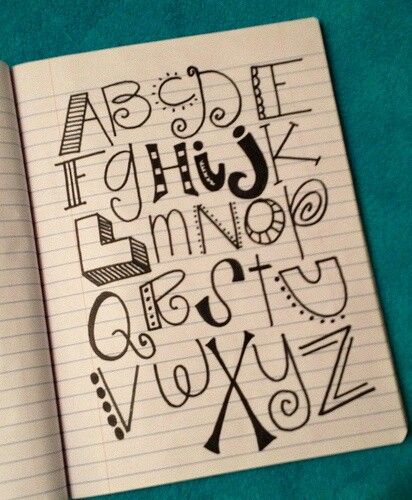 ABCDE
FgHijK
LmNOp
QRStU
VWXyZ